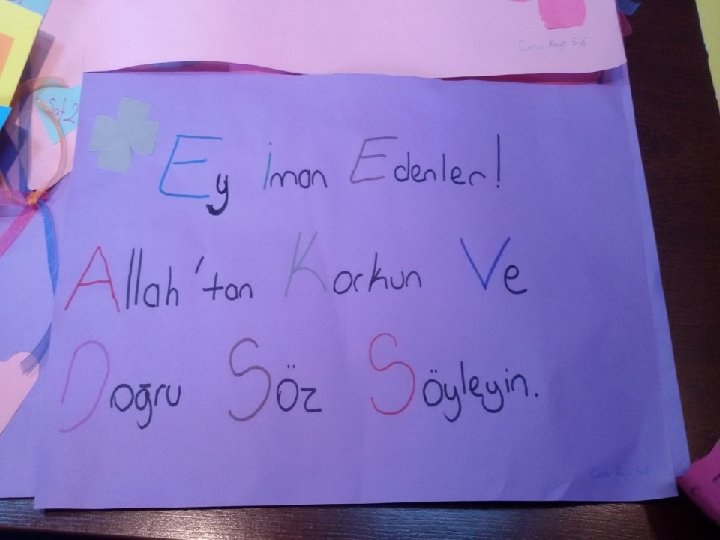 Ey iman Edenler!
Allah'tan Korkun Ve
Doğru Söz Söyleyin.